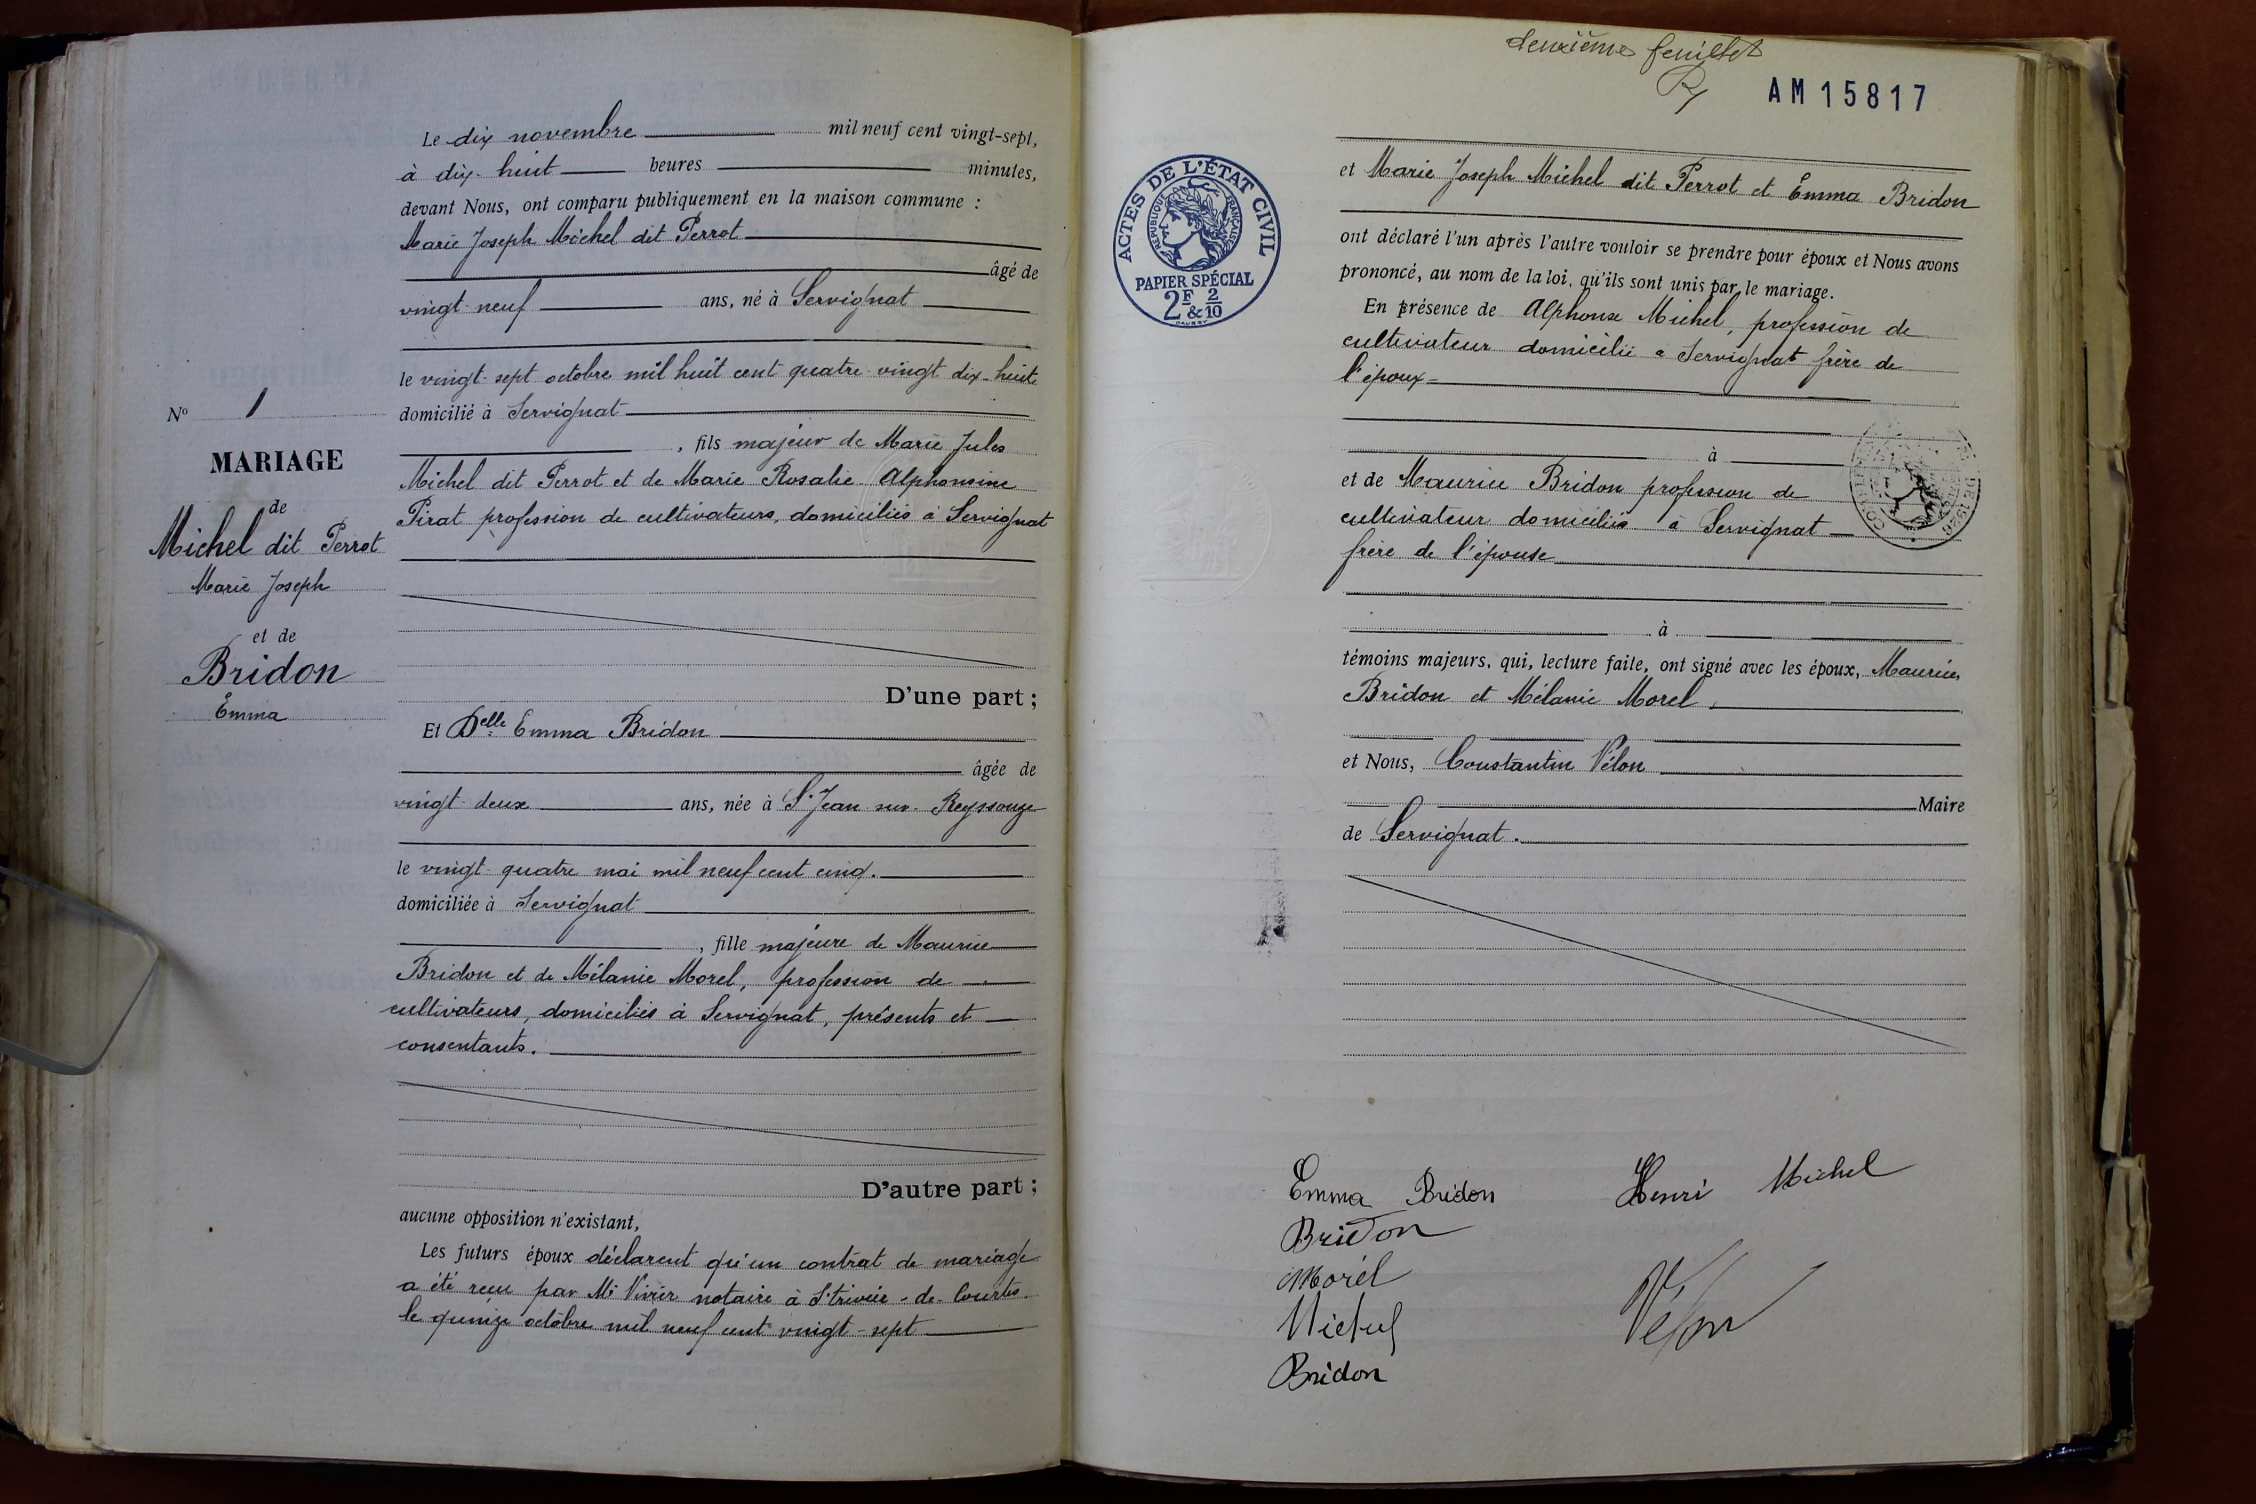 Le dix novembre mil neuf cent vingt-sept,
à dix-huit heures minutes,
devant Nous, ont comparu publiquement en la maison commune :
Marie Joseph Michel dit Perrot
âgé de
vingt-neuf ans, né à Servignat
le vingt-sept octobre mil huit cent quatre-vingt dix-huit
domicilié à Servignat
, fils majeur de Marie Jules
Michel dit Perrot et de Marie Rosalie Alphonsine
Pirat profession de cultivateurs, domiciliés à Servignat
D'une part ;
Nº 1
MARIAGE
de
Michel dit Perrot
Marie Joseph
et de
Bridon
Emma
Et Delle Emma Bridon
âgée de
vingt-deux ans, née à St Jean sur Reyssouze
le vingt-quatre mai mil neuf cent cinq.
domiciliée à Servignat
, fille majeure de Maurice
Bridon et de Mélanie Morel, profession de
cultivateurs, domiciliés à Servignat, présents et
consentants.
D'autre part ;
aucune opposition n'existant,
Les futurs époux déclarent qu'un contrat de mariage
a été reçu par Me Vivier notaire à St trivier-de-Courtes
le quinze octobre mil neuf cent vingt-sept
deuxième feuillet
AM 15817
ACTES DE L'ÉTAT CIVIL
RÉPUBLIQUE FRANÇAISE
PAPIER SPÉCIAL
2F & 2/10
et Marie Joseph Michel dit Perrot et Emma Bridon
ont déclaré l'un après l'autre vouloir se prendre pour époux et Nous avons
prononcé, au nom de la loi, qu'ils sont unis par le mariage.
En présence de Alphonse Michel, profession de
cultivateur domicilié à Servignat frère de
l'époux
à
et de Maurice Bridon profession de
cultivateur domiciliés à Servignat
frère de l'épouse
à
témoins majeurs, qui, lecture faite, ont signé avec les époux, Maurice
Bridon et Mélanie Morel,
et Nous, Constantin Vélon
Maire
de Servignat.
Emma Bridon Henri Michel
Bridon
Morél
Michel Vélon
Bridon